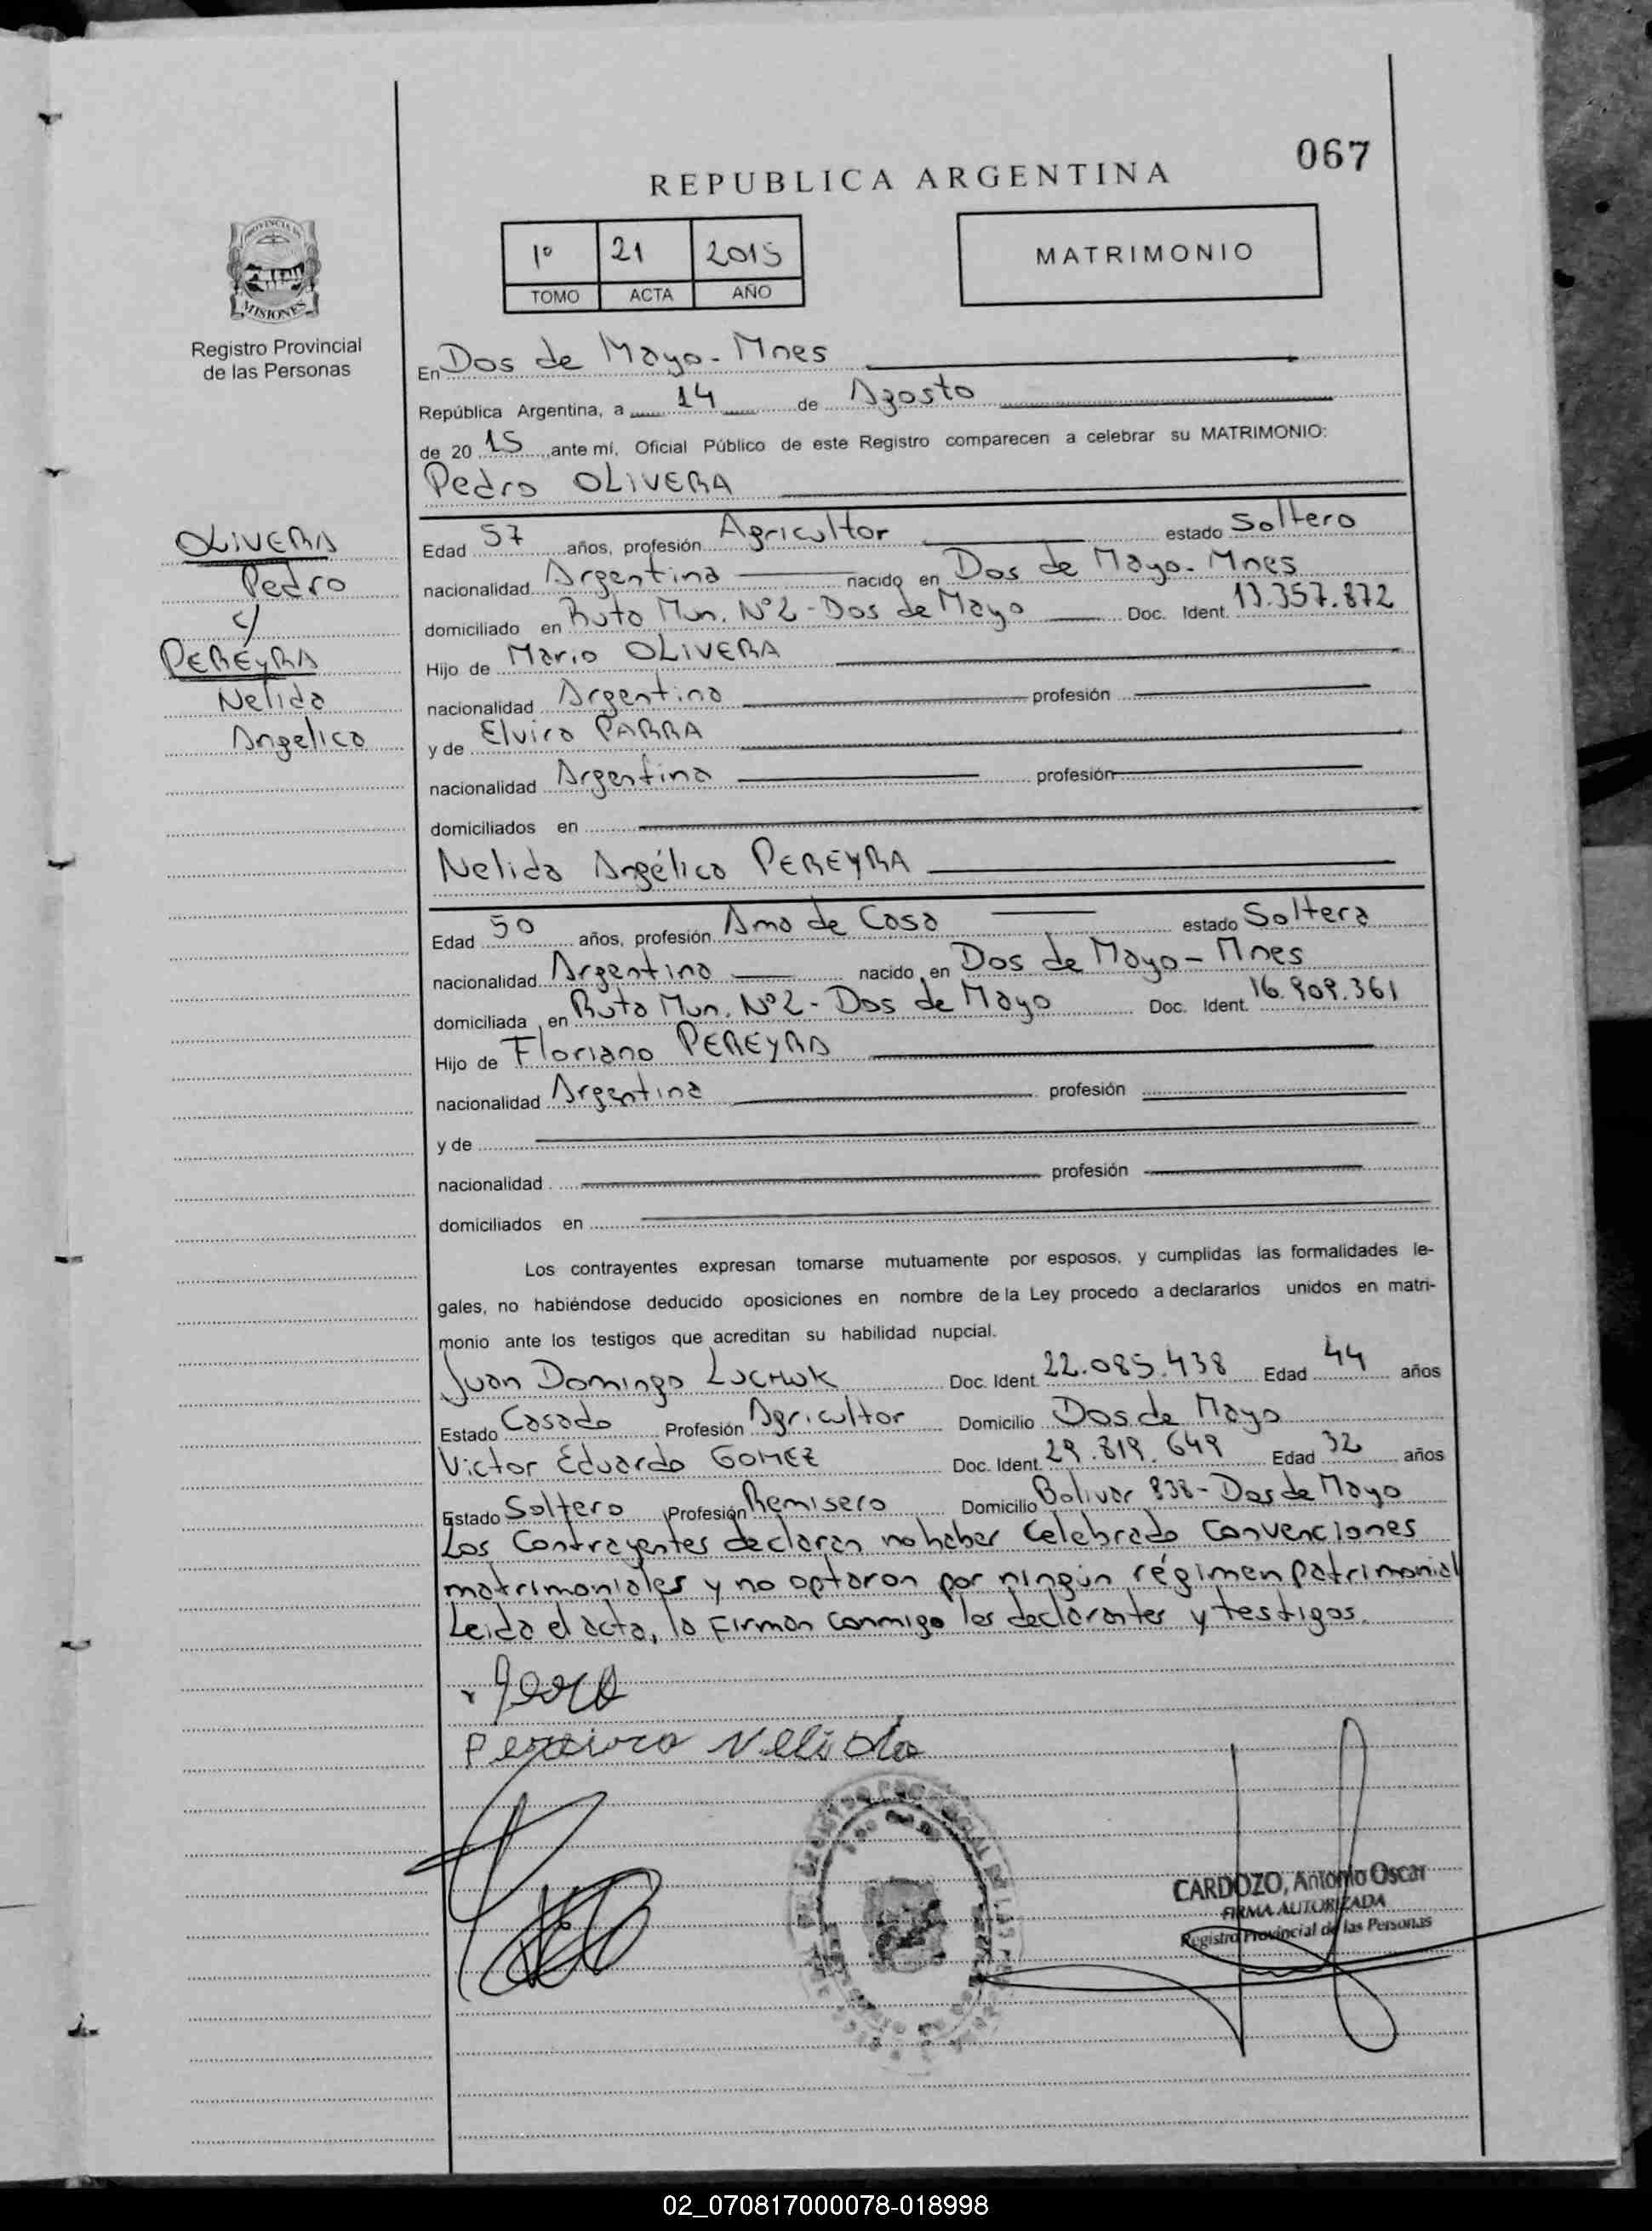 067
REPUBLICA ARGENTINA
1º 21 2015
TOMO ACTA AÑO
MATRIMONIO
PROVINCIA DE
MISIONES
Registro Provincial
de las Personas
En Dos de Mayo - Mnes
República Argentina, a 14 de Agosto
de 20 15 ante mí, Oficial Público de este Registro comparecen a celebrar su MATRIMONIO:
Pedro OLIVERA
OLIVERA
Pedro
c/
PEREYRA
Nelida
Angelica
Edad 57 años, profesión Agricultor estado Soltero
nacionalidad Argentina nacido en Dos de Mayo - Mnes
domiciliado en Ruta Mun. Nº2 - Dos de Mayo Doc. Ident. 13.357.872
Hijo de Mario OLIVERA
nacionalidad Argentina profesión
y de Elvira PARRA
nacionalidad Argentina profesión
domiciliados en
Nelida Angélica PEREYRA
Edad 50 años, profesión Ama de Casa estado Soltera
nacionalidad Argentina nacido en Dos de Mayo - Mnes
domiciliada en Ruta Mun. Nº2 - Dos de Mayo Doc. Ident. 16.909.361
Hijo de Floriano PEREYRA
nacionalidad Argentina profesión
y de
nacionalidad profesión
domiciliados en
Los contrayentes expresan tomarse mutuamente por esposos, y cumplidas las formalidades le-
gales, no habiéndose deducido oposiciones en nombre de la Ley procedo a declararlos unidos en matri-
monio ante los testigos que acreditan su habilidad nupcial.
Juan Domingo LUCHUK Doc. Ident. 22.085.438 Edad 44 años
Estado Casado Profesión Agricultor Domicilio Dos de Mayo
Victor Eduardo GOMEZ Doc. Ident. 29.819.649 Edad 32 años
Estado Soltero Profesión Remisero Domicilio Bolivar 838 - Dos de Mayo
Los Contrayentes declaran no haber Celebrado Convenciones
matrimoniales y no optaron por ningún régimen patrimonial
Leida el acta, la Firman conmigo los declarantes y testigos.
Nelida
CARDOZO, Antonio Oscar
FIRMA AUTORIZADA
Registro Provincial de las Personas
02_070817000078-018998